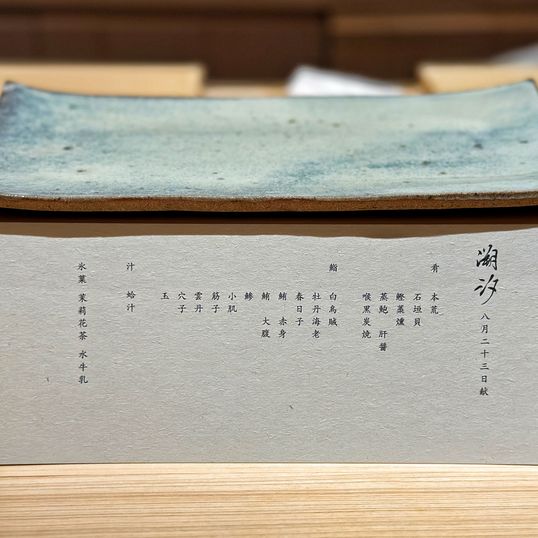 溯汐 八月二十三日献
肴 本荒
石垣貝
鰹藁燻
蒸鮑 肝醬
喉黒炭焼
鮨 白烏賊
牡丹海老
春日子
鮪 赤身
鮪 大腹
鰺
小肌
筋子
雲丹
穴子
玉
汁 蛤汁
氷菓 茉莉花茶 水牛乳